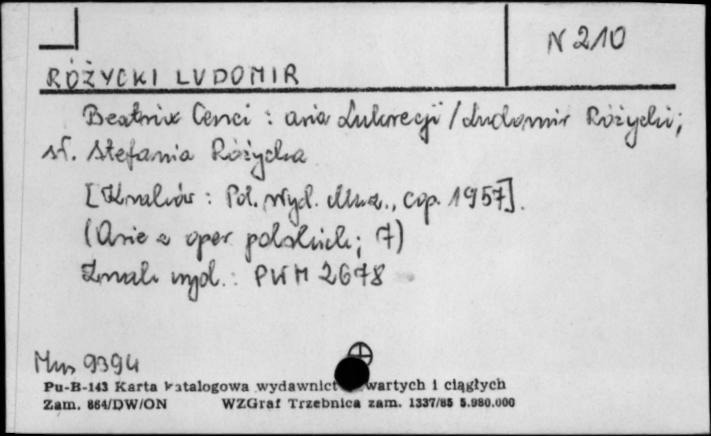 N 210
RÓŻYCKI LUDOMIR
Beatrix Cenci : aria Lukrecji / Ludomir Różycki;
sł. Stefania Różycka
[Kraków : Pol. Wyd. Muz., cop. 1957].
(Arie z oper polskich; 7)
Znak wyd. : PWM 2678
Mus 9394
Pu-B-143 Karta katalogowa wydawnict wartych i ciągłych
Zam. 864/DW/ON WZGraf Trzebnica zam. 1337/85 5.980.000